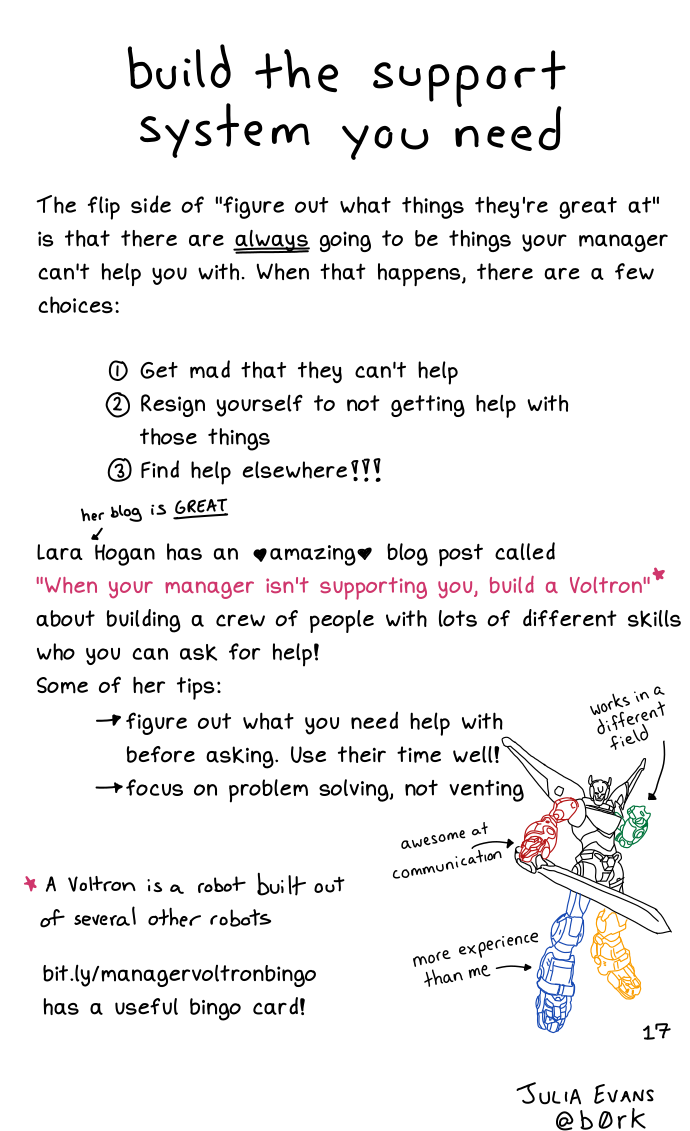 build the support
system you need
The flip side of "figure out what things they're great at"
is that there are always going to be things your manager
can't help you with. When that happens, there are a few
choices:
① Get mad that they can't help
② Resign yourself to not getting help with
those things
③ Find help elsewhere!!!
her blog is GREAT
Lara Hogan has an ♥amazing♥ blog post called
"When your manager isn't supporting you, build a Voltron"★
about building a crew of people with lots of different skills
who you can ask for help!
Some of her tips:
→ figure out what you need help with
before asking. Use their time well!
→ focus on problem solving, not venting
works in a
different
field
awesome at
communication
★ A Voltron is a robot built out
of several other robots
more experience
than me
bit.ly/managervoltronbingo
has a useful bingo card!
17
JULIA EVANS
@b0rk